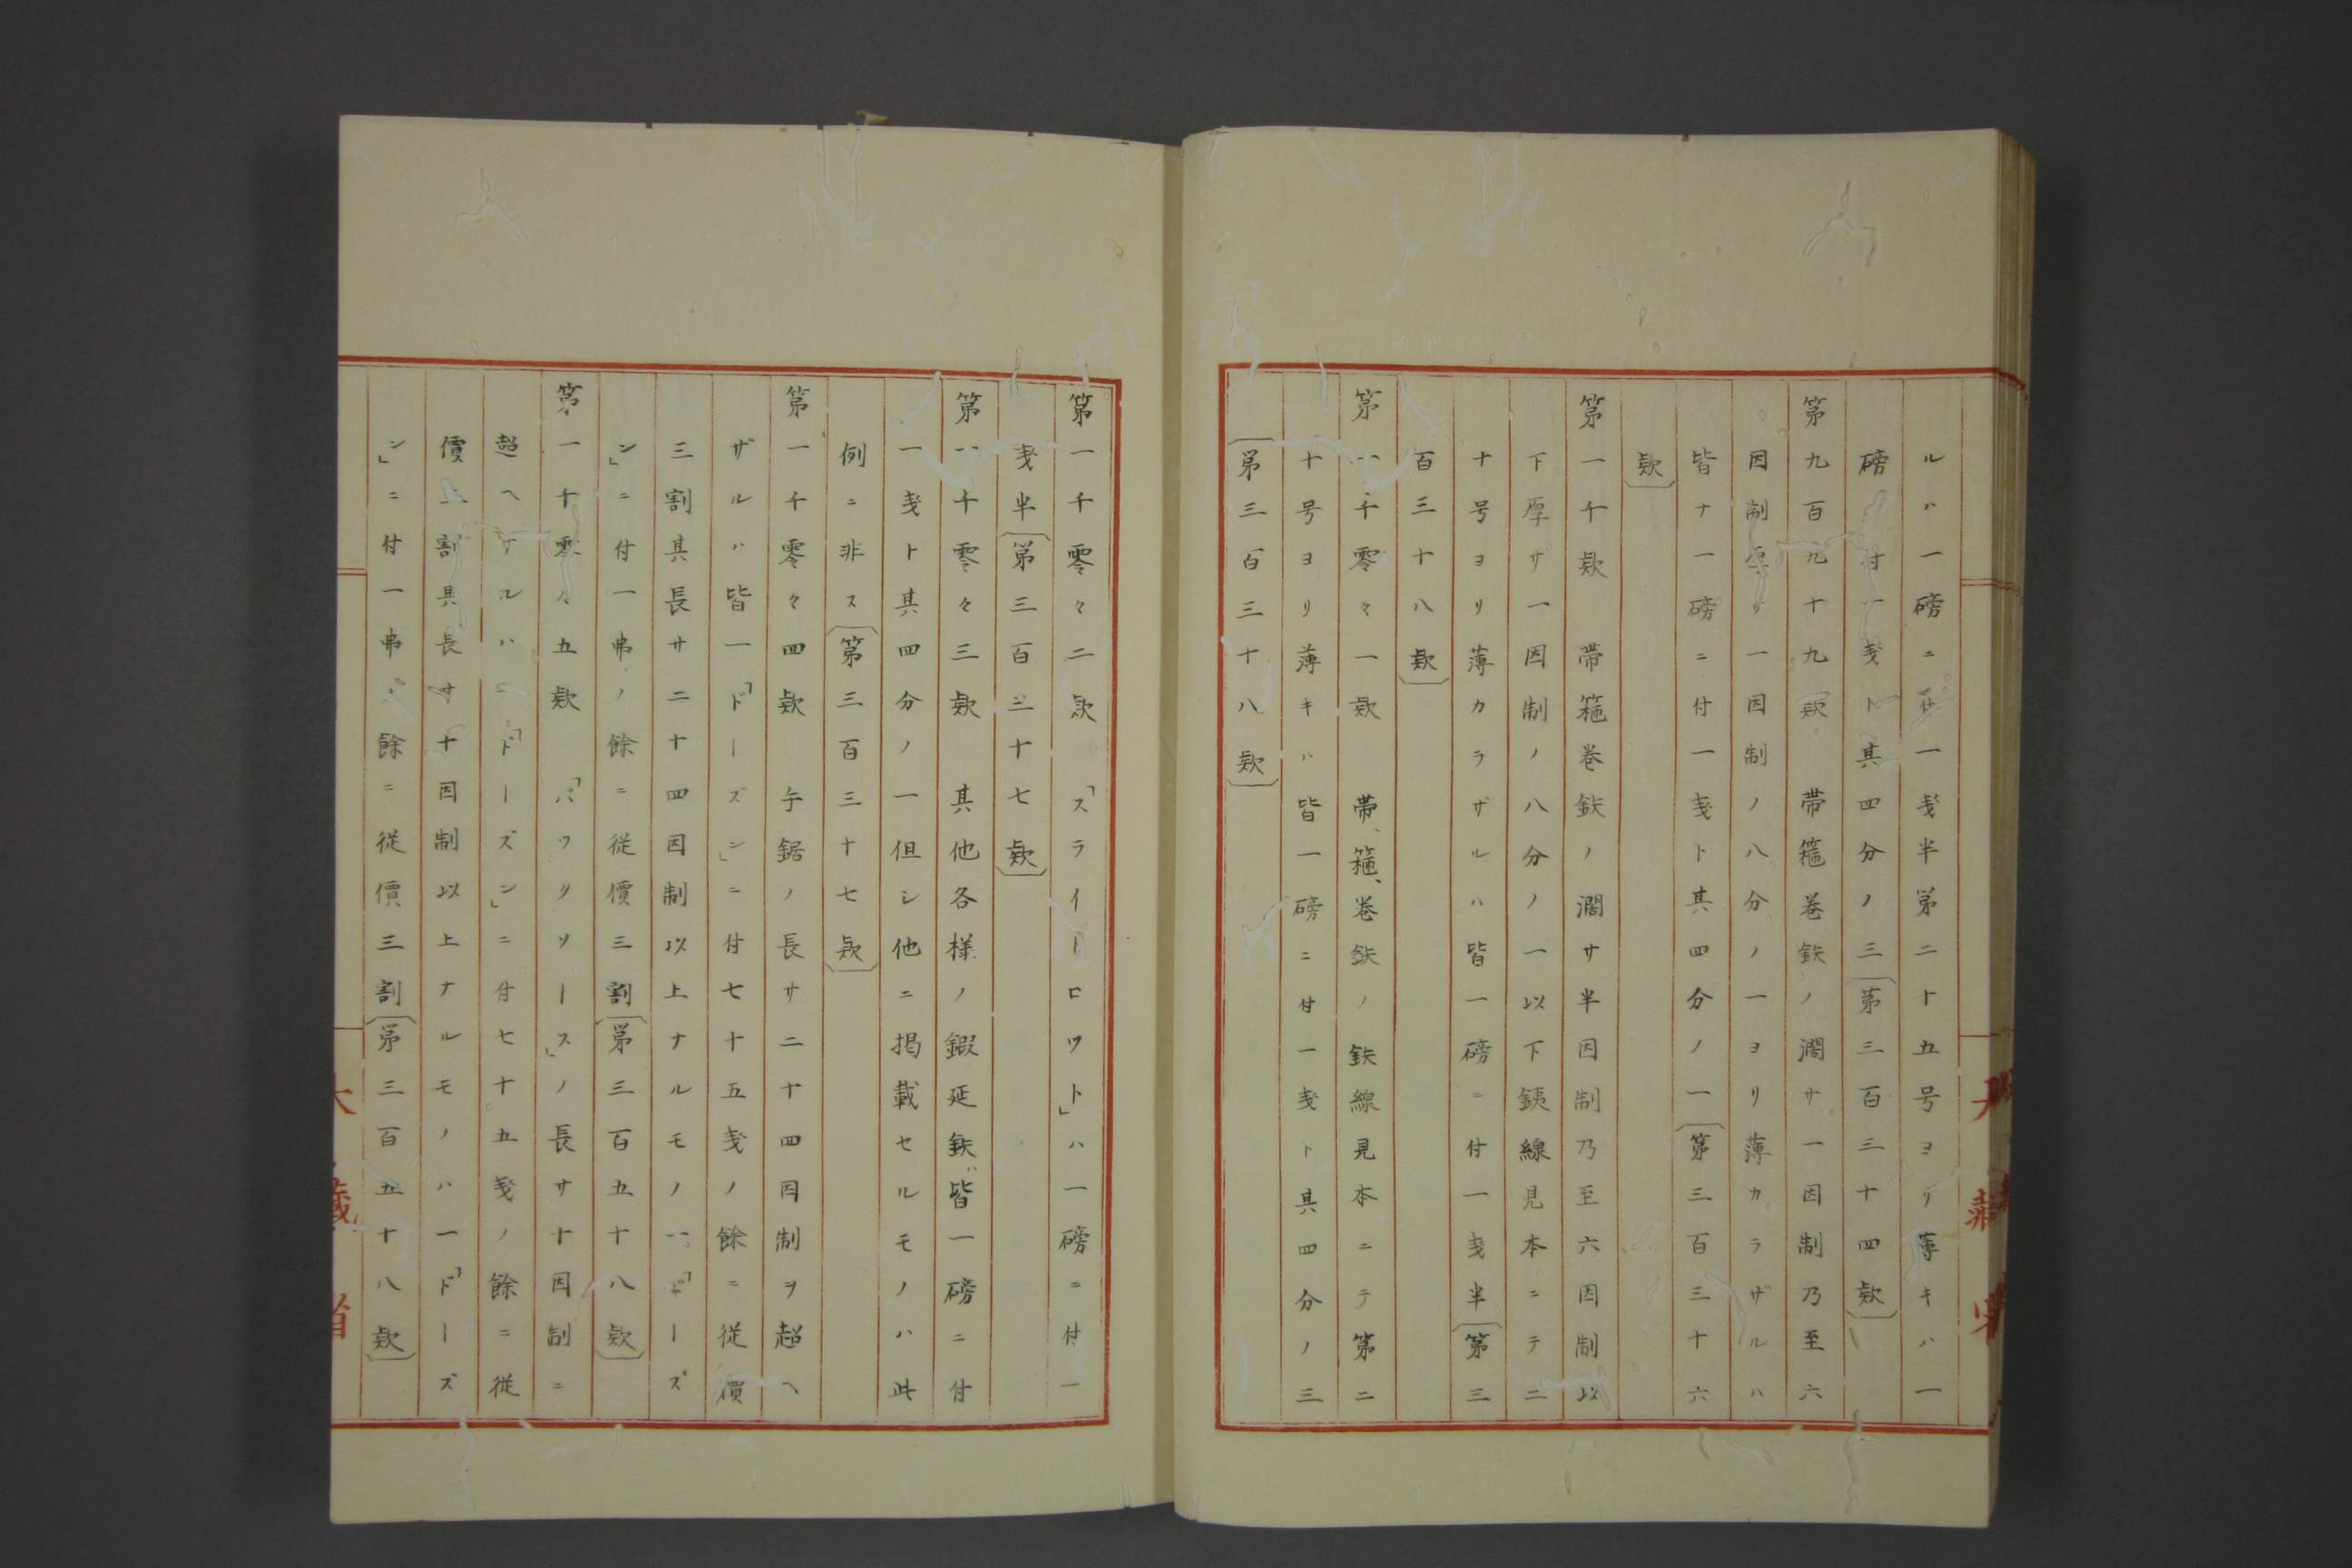 ルハ一磅ニ付一戔半第二十五号ヨリ薄キハ一
磅ニ付一戔ト其四分ノ三〔第三百三十四欵〕
第九百九十九欵　帯箍巻鉄ノ濶サ一因制乃至六
因制厚サ一因制ノ八分ノ一ヨリ薄カラザルハ
皆ナ一磅ニ付一戔ト其四分ノ一〔第三百三十六
欵〕
第一千欵　帯箍巻鉄ノ濶サ半因制乃至六因制以
下厚サ一因制ノ八分ノ一以下銕線見本ニテ二
十号ヨリ薄カラザルハ皆一磅ニ付一戔半〔第三
百三十八欵〕
第一千零々一欵　帯、箍、巻鉄ノ鉄線見本ニテ第二
十号ヨリ薄キハ皆一磅ニ付一戔ト其四分ノ三
〔第三百三十八欵〕
第一千零々二欵　「スライトロワト」ハ一磅ニ付一
戔半〔第三百三十七欵〕
第一千零々三欵　其他各様ノ鍜延鉄ハ皆一磅ニ付
一戔ト其四分ノ一但シ他ニ掲載セルモノハ此
例ニ非ス〔第三百三十七欵〕
第一千零々四欵　手鋸ノ長サ二十四因制ヲ超ヘ
ザルハ皆一「ドーズン」ニ付七十五戔ノ餘ニ従價
三割其長サ二十四因制以上ナルモノハ一「ドーズ
ン」ニ付一弗ノ餘ニ従價三割〔第三百五十八欵〕
第一千零々五欵　「バツクソース」ノ長サ十因制ニ
超ヘザルハ一「ドーズン」ニ付七十五戔ノ餘ニ従
價三割其長サ十因制以上ナルモノハ一「ドーズ
ン」ニ付一弗ノ餘ニ従價三割〔第三百五十八欵〕
大藏省